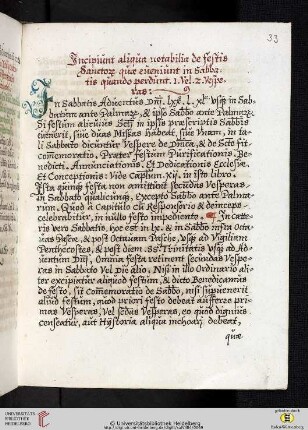 33
Incipiunt aliqua notabilia de festis
Sanctorꝝ quæ eveniunt in Sabba-
tis quando perdunt. 1. Vel. 2. Vespe-
ras:
In Sabbatis Adventus Dñi. lxx. l. xl. usq in Sab-
batum ante Palmaꝝ, & ipso Sabbo ante Palmaꝝ.
Si festum alicuius Sctī in ipsis præscriptis Sabbis
evenerit, sive duas Missas habeat, sive Unam, in ta-
li Sabbato dicuntur Vespere de Dnca, & de Scto fit
cōmemoratio. Præter festum Purificationis, Be-
nedicti, Annunciationis, Et Dedicationis Ecclesiæ,
Et Conceptionis: Vide Capitum. XIJ. in isto libro.
Ista quinq festa non amittunt secundas Vesperas,
in Sabbato qualicumq, Excepto Sabbo ante Palma-
rum. Quod a Capitulo Et Responsorio & deinceps
celebrabitur, in nullo festo impediente. In cæte-
ris vero Sabbatis, hoc est in lx. & in Sabbo infra octa-
vas Pasce, & post Octavam Pasche, usq ad Vigiliam
Penthecostes, & post diem Sctē Trinitatis usq ad Ad-
ventum Dñi, Omnia festa retinent secundas Vespe-
ras in Sabbato Vel die alio. Nisi in illo Ordinario ali-
ter excipiatur aliquod festum, & dicto Benedicamus
de festo, fit Cōmemoratio de Sabbo, nisi supvenerit
aliud festum, quod priori festo debeat aufferre pri-
mas Vesperas, Vel sedas Vesperas, eo quod dignius
censeatur, aut Hystoria aliqua inchoari debeat,
quæ
UNIVERSITÄTS-
BIBLIOTHEK
HEIDELBERG
© Universitätsbibliothek Heidelberg